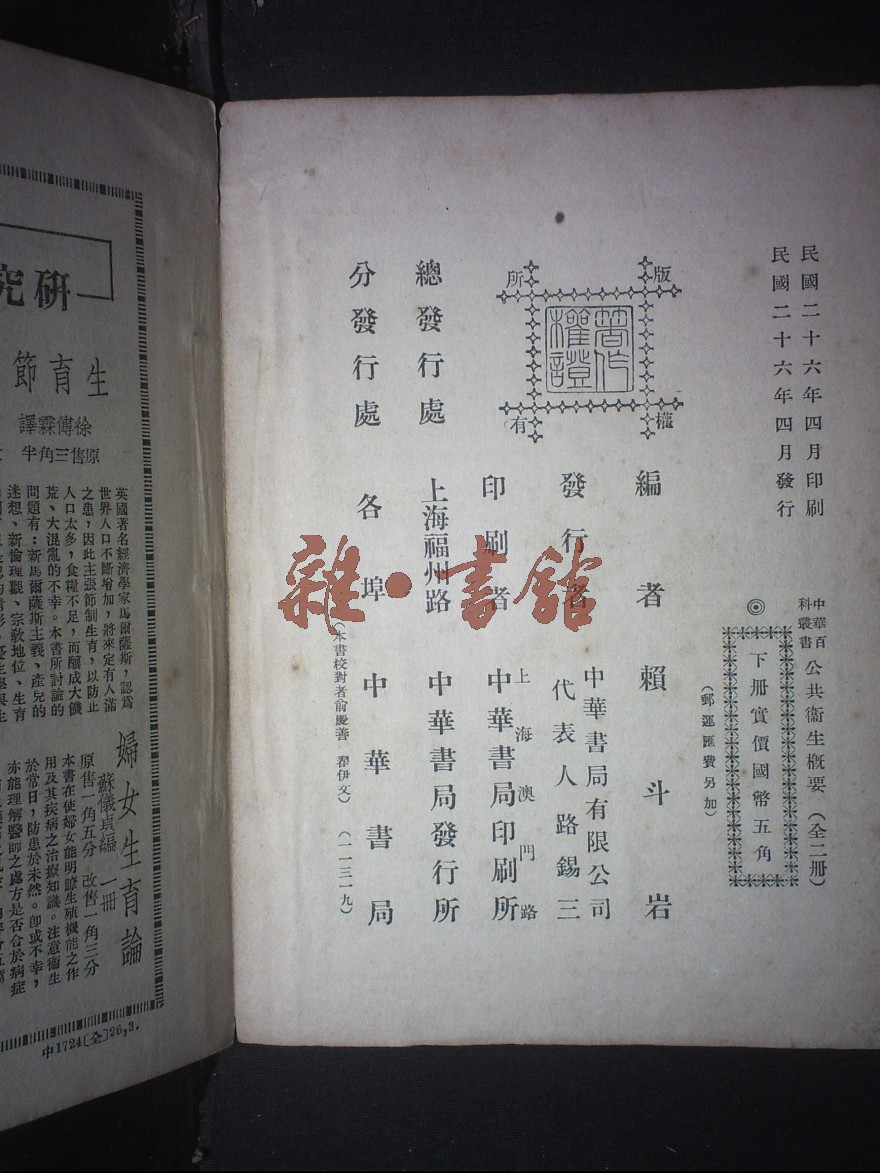 民國二十六年四月印刷
民國二十六年四月發行
中華百科叢書
公共衞生概要（全二册）
◎
下册實價國幣五角
（郵運匯費另加）
版權所有
著作權證
編者賴斗岩
發行者
中華書局有限公司
代表人路錫三
印刷者
上海澳門路
中華書局印刷所
總發行處
上海福州路
中華書局發行所
分發行處
各埠中華書局
（本書校對者俞慶善 翟伊文）（一一三一九）
雜·書館
研究
生育節
徐傅霖譯
原售三角半
英國著名經濟學家馬爾薩斯，認爲
世界人口不斷增加，將來定有人滿
之患，因此主張節制生育，以防止
人口太多，食糧不足，而釀成大饑
荒、大混亂的不幸。本書所討論的
問題有：新馬爾薩斯主義、產兒的
迷想、新倫理觀、宗教地位、生育
婦女生育論
蘇儀貞編 一册
原售一角五分 改售一角三分
本書在使婦女能明瞭生殖機能之作
用及其疾病之治療知識。注意衞生
於常日，防患於未然。卽或不幸，
亦能理解醫師之處方是否合於病症
中1724〔全〕26,3.